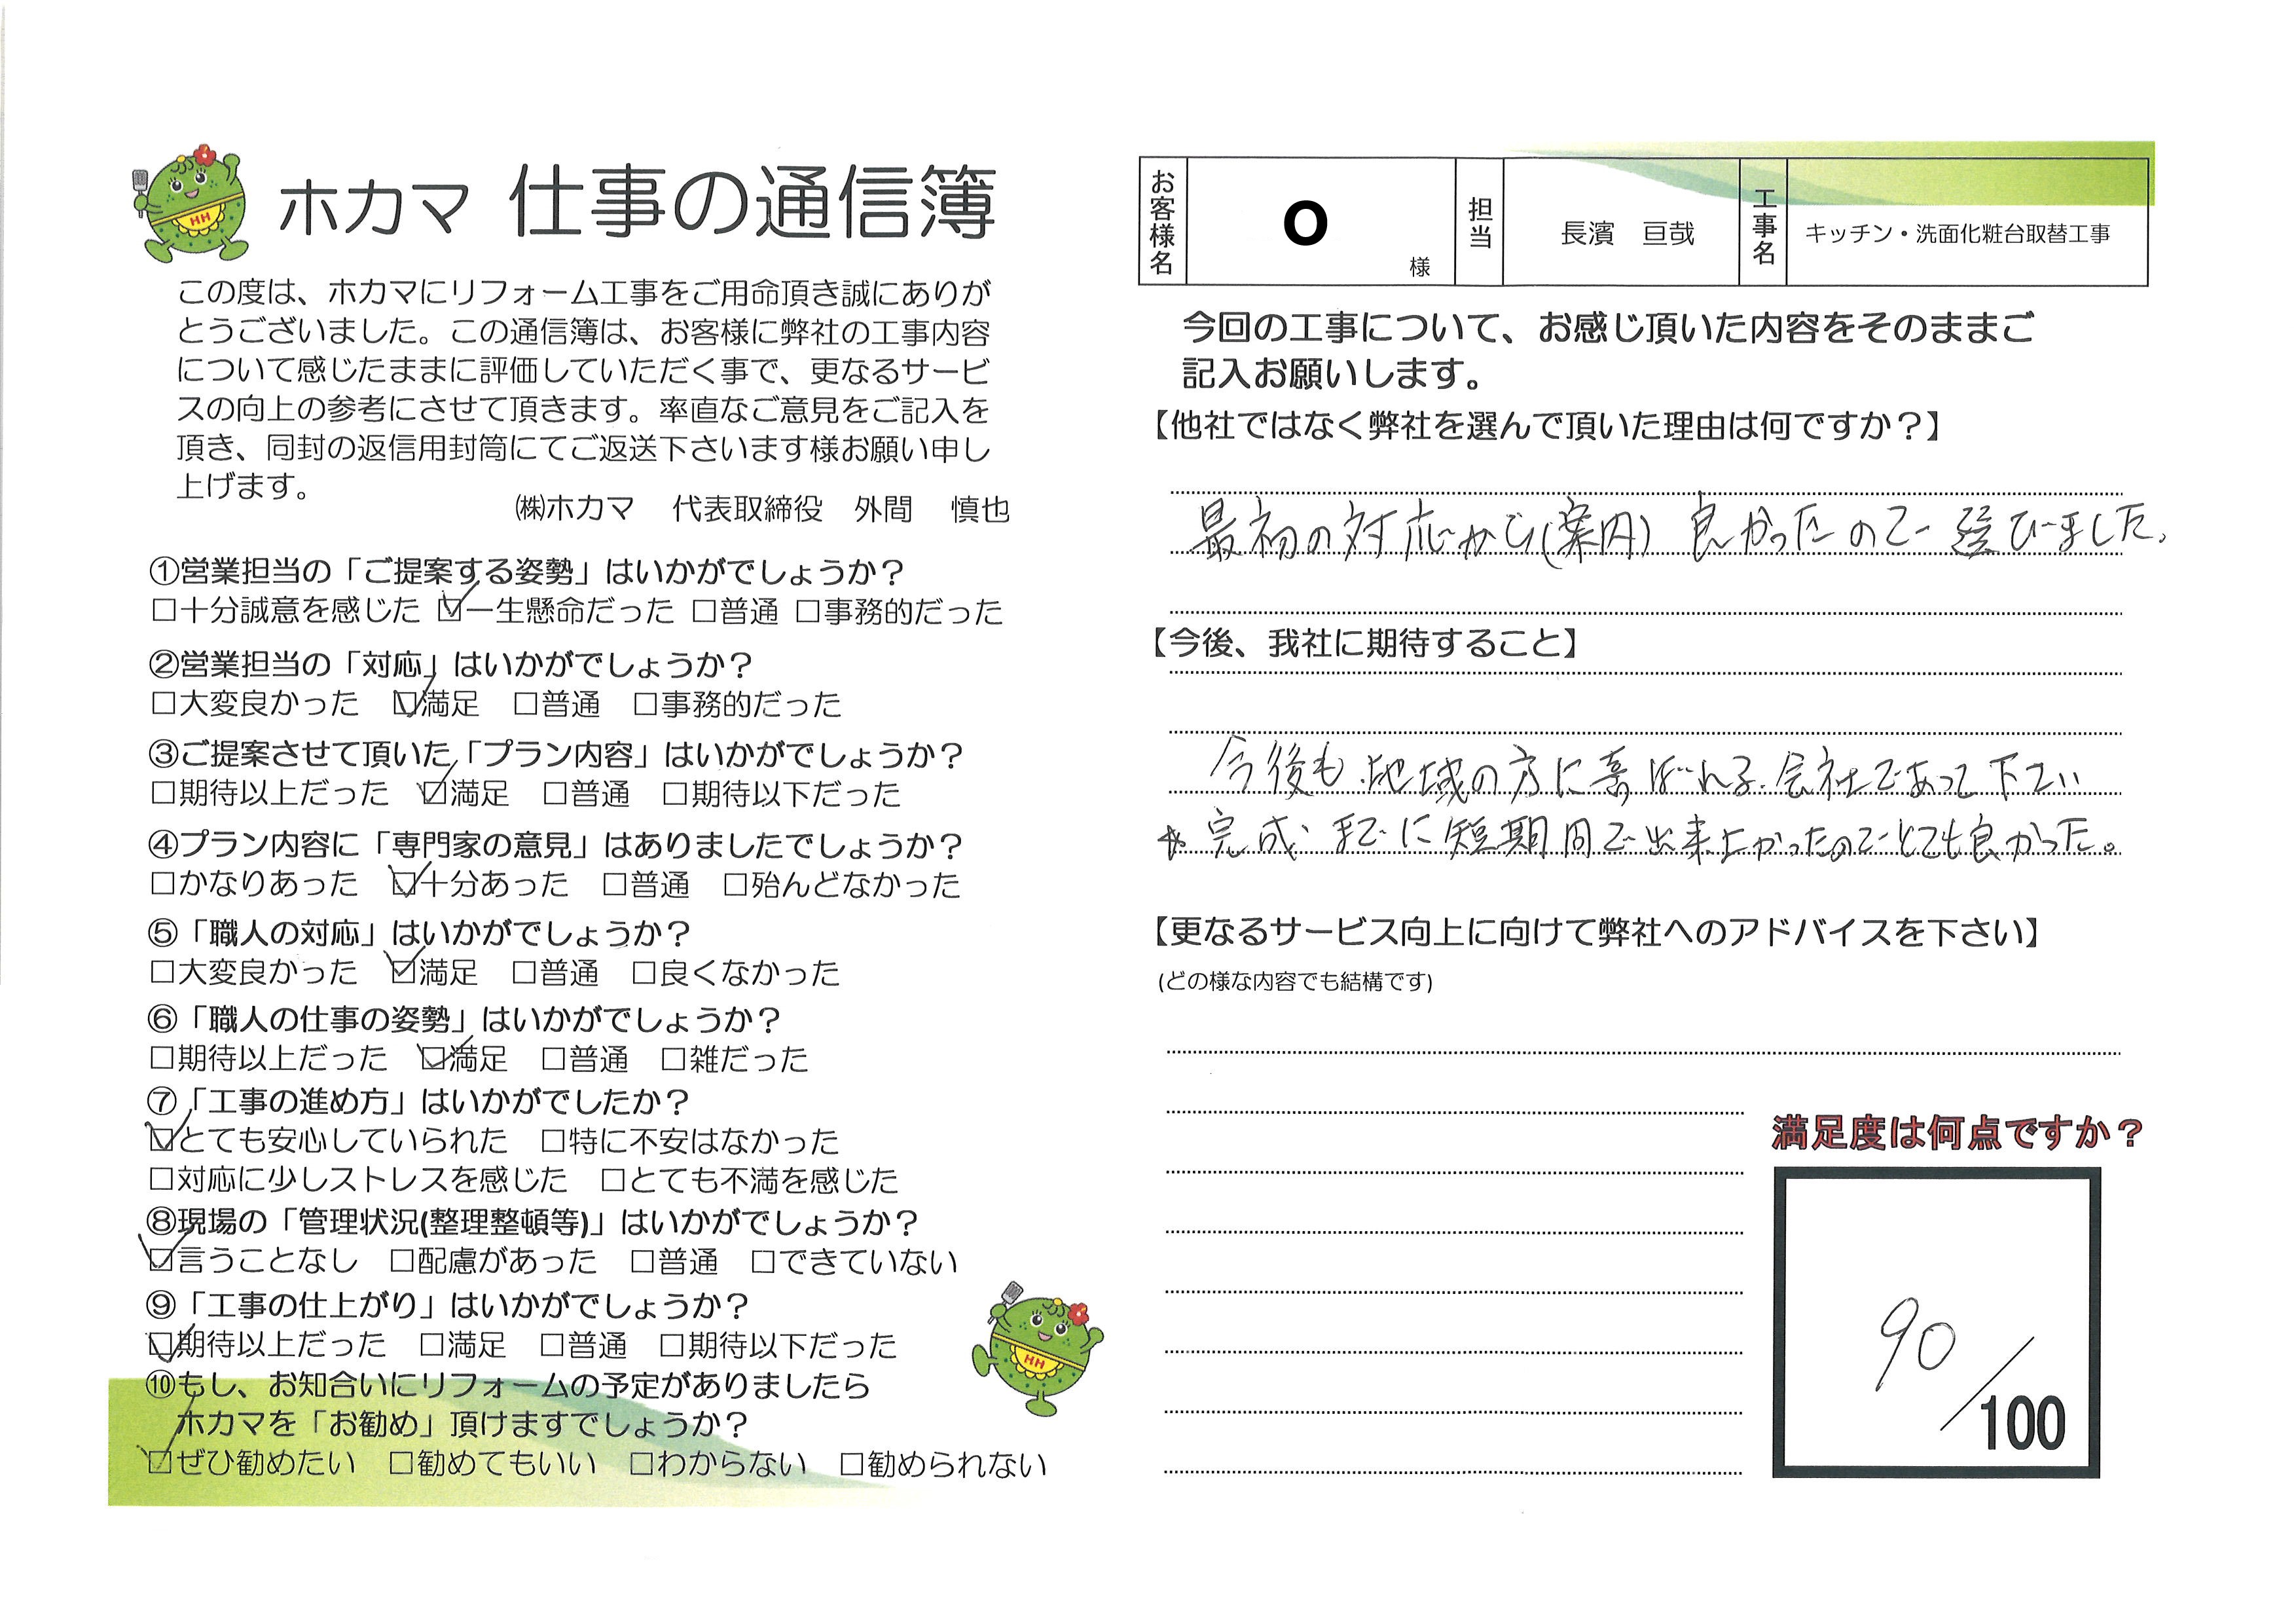 ホカマ 仕事の通信簿
この度は、ホカマにリフォーム工事をご用命頂き誠にありが
とうございました。この通信簿は、お客様に弊社の工事内容
について感じたままに評価していただく事で、更なるサービ
スの向上の参考にさせて頂きます。率直なご意見をご記入を
頂き、同封の返信用封筒にてご返送下さいます様お願い申し
上げます。
㈱ホカマ 代表取締役 外間 慎也
①営業担当の「ご提案する姿勢」はいかがでしょうか？
□十分誠意を感じた ☑一生懸命だった □普通 □事務的だった
②営業担当の「対応」はいかがでしょうか？
□大変良かった ☑満足 □普通 □事務的だった
③ご提案させて頂いた「プラン内容」はいかがでしょうか？
□期待以上だった ☑満足 □普通 □期待以下だった
④プラン内容に「専門家の意見」はありましたでしょうか？
□かなりあった ☑十分あった □普通 □殆んどなかった
⑤「職人の対応」はいかがでしょうか？
□大変良かった ☑満足 □普通 □良くなかった
⑥「職人の仕事の姿勢」はいかがでしょうか？
□期待以上だった ☑満足 □普通 □雑だった
⑦「工事の進め方」はいかがでしたか？
☑とても安心していられた □特に不安はなかった
□対応に少しストレスを感じた □とても不満を感じた
⑧現場の「管理状況(整理整頓等)」はいかがでしょうか？
☑言うことなし □配慮があった □普通 □できていない
⑨「工事の仕上がり」はいかがでしょうか？
☑期待以上だった □満足 □普通 □期待以下だった
⑩もし、お知合いにリフォームの予定がありましたら
ホカマを「お勧め」頂けますでしょうか？
☑ぜひ勧めたい □勧めてもいい □わからない □勧められない
HH
HH
お客様名 O 様 担当 長濱 亘哉 工事名 キッチン・洗面化粧台取替工事
今回の工事について、お感じ頂いた内容をそのままご
記入お願いします。
【他社ではなく弊社を選んで頂いた理由は何ですか？】
最初の対応から(案内) 良かったので 選びました。
【今後、我社に期待すること】
今後も地域の方に喜ばれる会社であって下さい
☆完成までに短期間で出来上がったのでとても良かった。
【更なるサービス向上に向けて弊社へのアドバイスを下さい】
(どの様な内容でも結構です)
満足度は何点ですか？
90/100